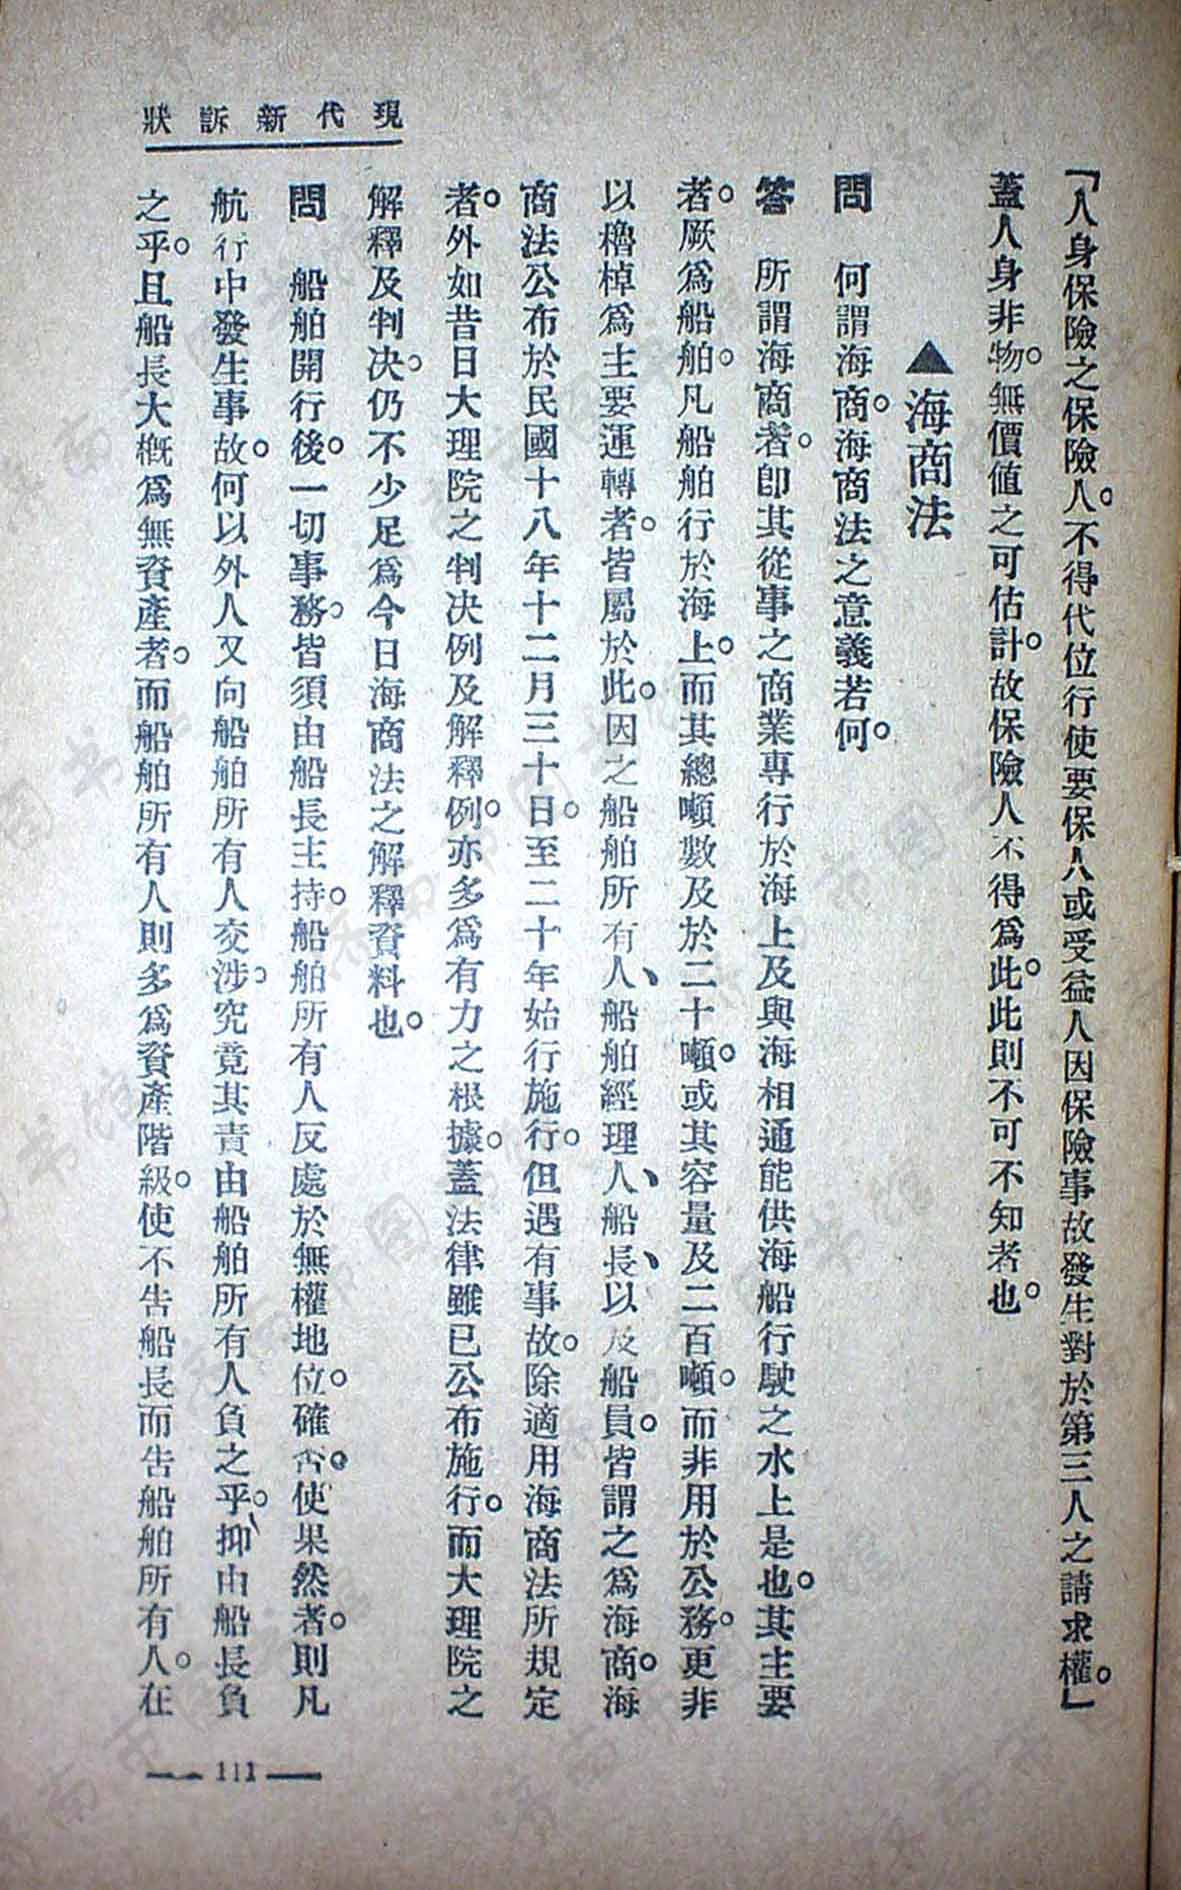 「人身保險之保險人。不得代位行使要保人或受益人因保險事故發生對於第三人之請求權。」
蓋人身非物。無價値之可估計。故保險人不得爲此。此則不可不知者也。
▲海商法
問　何謂海商。海商法之意義若何。
答　所謂海商者。卽其從事之商業專行於海上及與海相通能供海船行駛之水上是也。其主要
者。厥爲船舶。凡船舶行於海上。而其總噸數及於二十噸。或其容量及二百噸。而非用於公務。更非
以櫓棹爲主要運轉者。皆屬於此。因之船舶所有人、船舶經理人、船長、以及船員。皆謂之爲海商。海
商法公布於民國十八年十二月三十日。至二十年始行施行。但遇有事故。除適用海商法所規定
者。外如昔日大理院之判决例及解釋例。亦多爲有力之根據。蓋法律雖已公布施行。而大理院之
解釋及判决。仍不少足爲今日海商法之解釋資料也。
問　船舶開行後。一切事務。皆須由船長主持。船舶所有人反處於無權地位。確否。使果然者。則凡
航行中發生事故。何以外人又向船舶所有人交涉。究竟其責由船舶所有人負之乎。抑由船長負
之乎。且船長大概爲無資產者。而船舶所有人則多爲資產階級。使不告船長而告船舶所有人。在
現代新訴狀
111